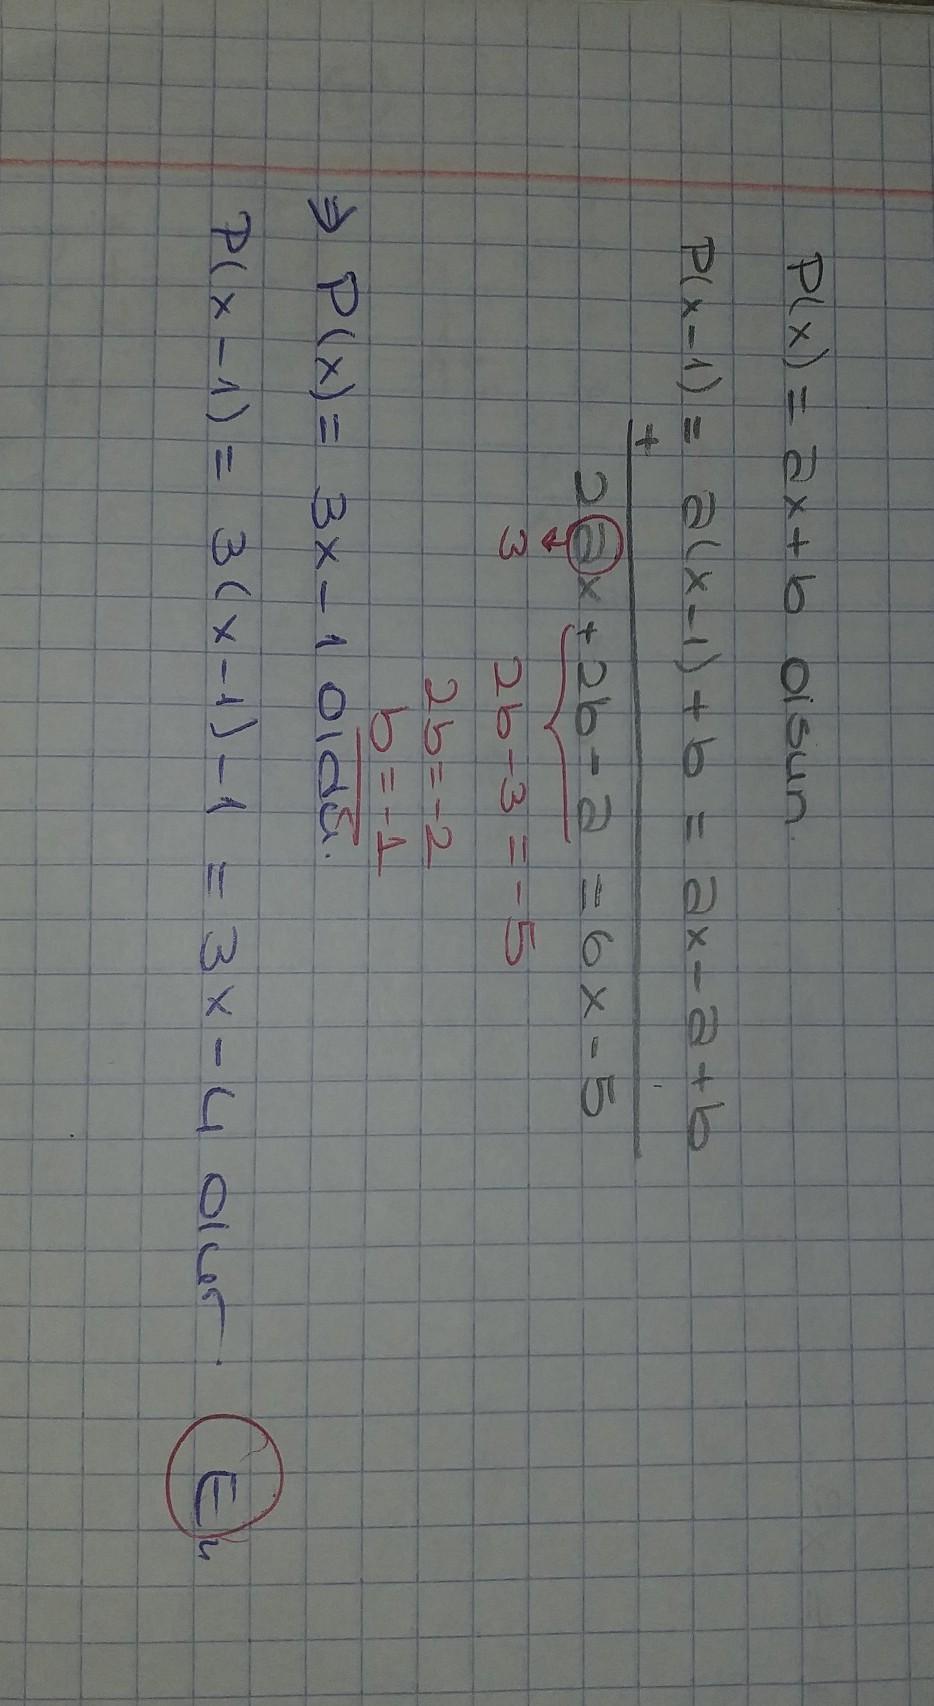 P(x) = ax + b olsun.
P(x-1) = a(x-1) + b = ax - a + b
+
2ax + 2b - a = 6x - 5
3 2b - 3 = -5
2b = -2
b = -1
⇒ P(x) = 3x - 1 oldu.
P(x-1) = 3(x-1) - 1 = 3x - 4 olur.
E